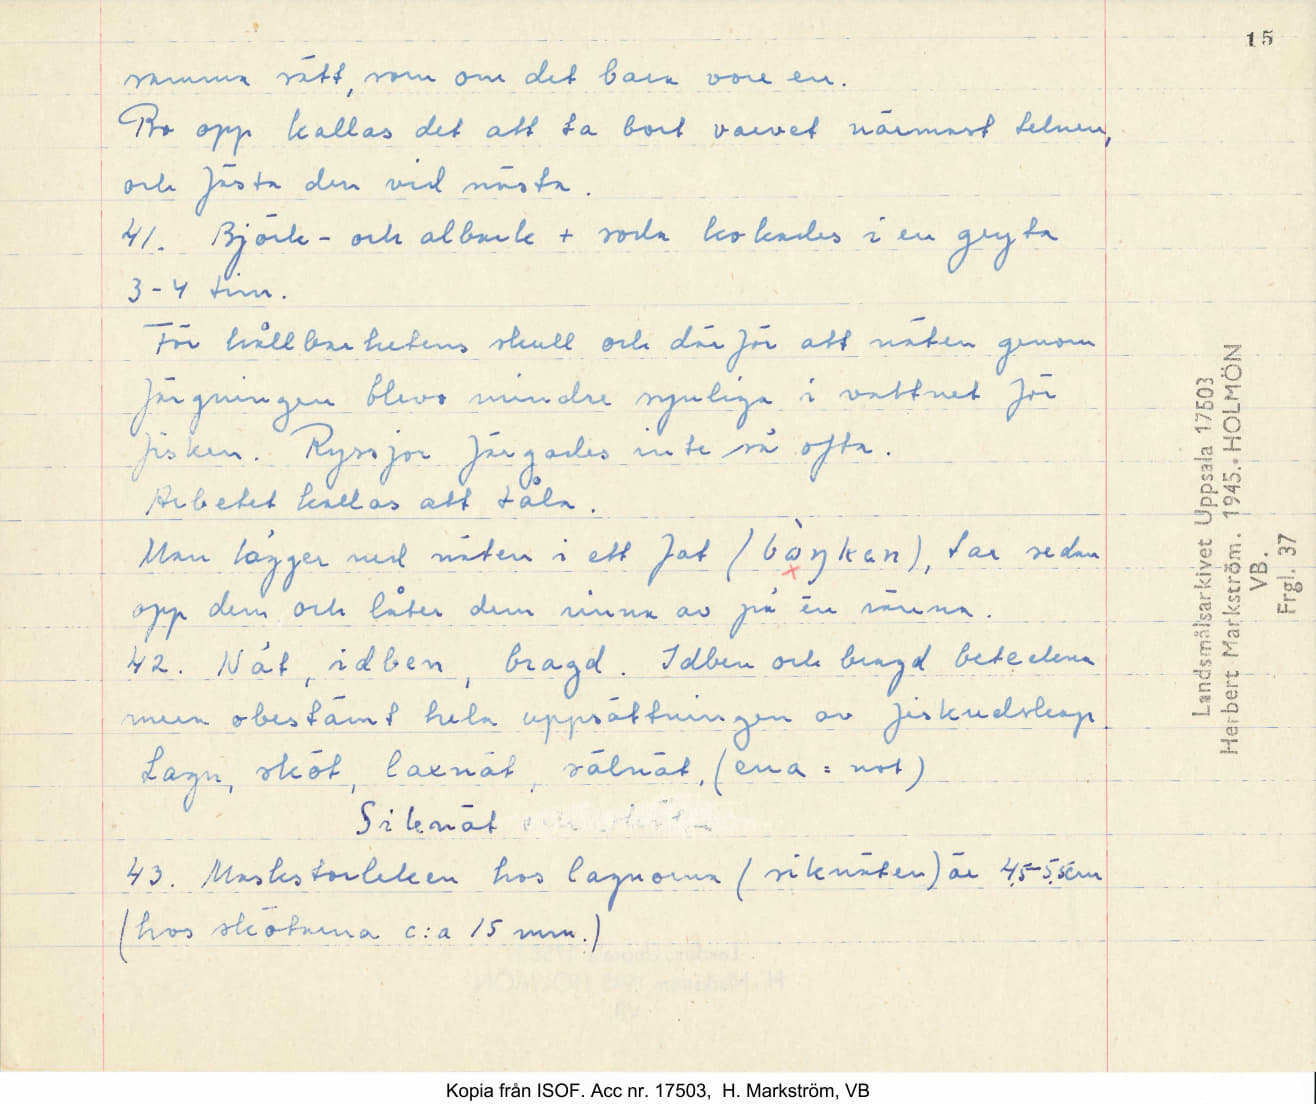 15
samma sätt, som om det bara vore en.
Bo opp kallas det att ta bort varvet närmast telnen,
och fästa den vid nästa.
41. Björk- och albark + soda kokades i en gryta
3-4 tim.
För hållbarhetens skull och därför att näten genom
färgningen blevo mindre synliga i vattnet för
fisken. Ryssjor färgades inte så ofta.
Arbetet kallas att tåla.
Man lägger ned näten i ett fat ( ), tar sedan
opp dem och låter dem rinna av på en ränna.
42. Nät, idben, bragd. Idben och bragd beteckna
mera obestämt hela uppsättningen av fiskredskap.
Lagn, sköt, laxnät, sälnät, (ena = not)
Siknät
43. Maskstorleken hos lagnorna (siknäten) är 4,5-5,5cm
(hos skötarna c:a 15 mm.)
Landsmålsarkivet Uppsala 17503
Herbert Markström. 1945. HOLMÖN
VB.
Frgl. 37
Kopia från ISOF. Acc nr. 17503, H. Markström, VB